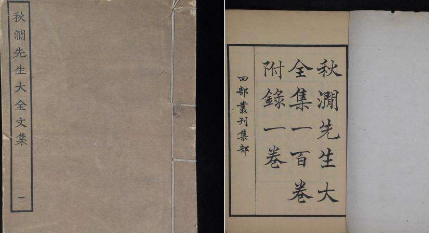 秋澗先生大全文集
一
秋澗先生大
全集一百卷
附錄一卷
四部叢刊集部